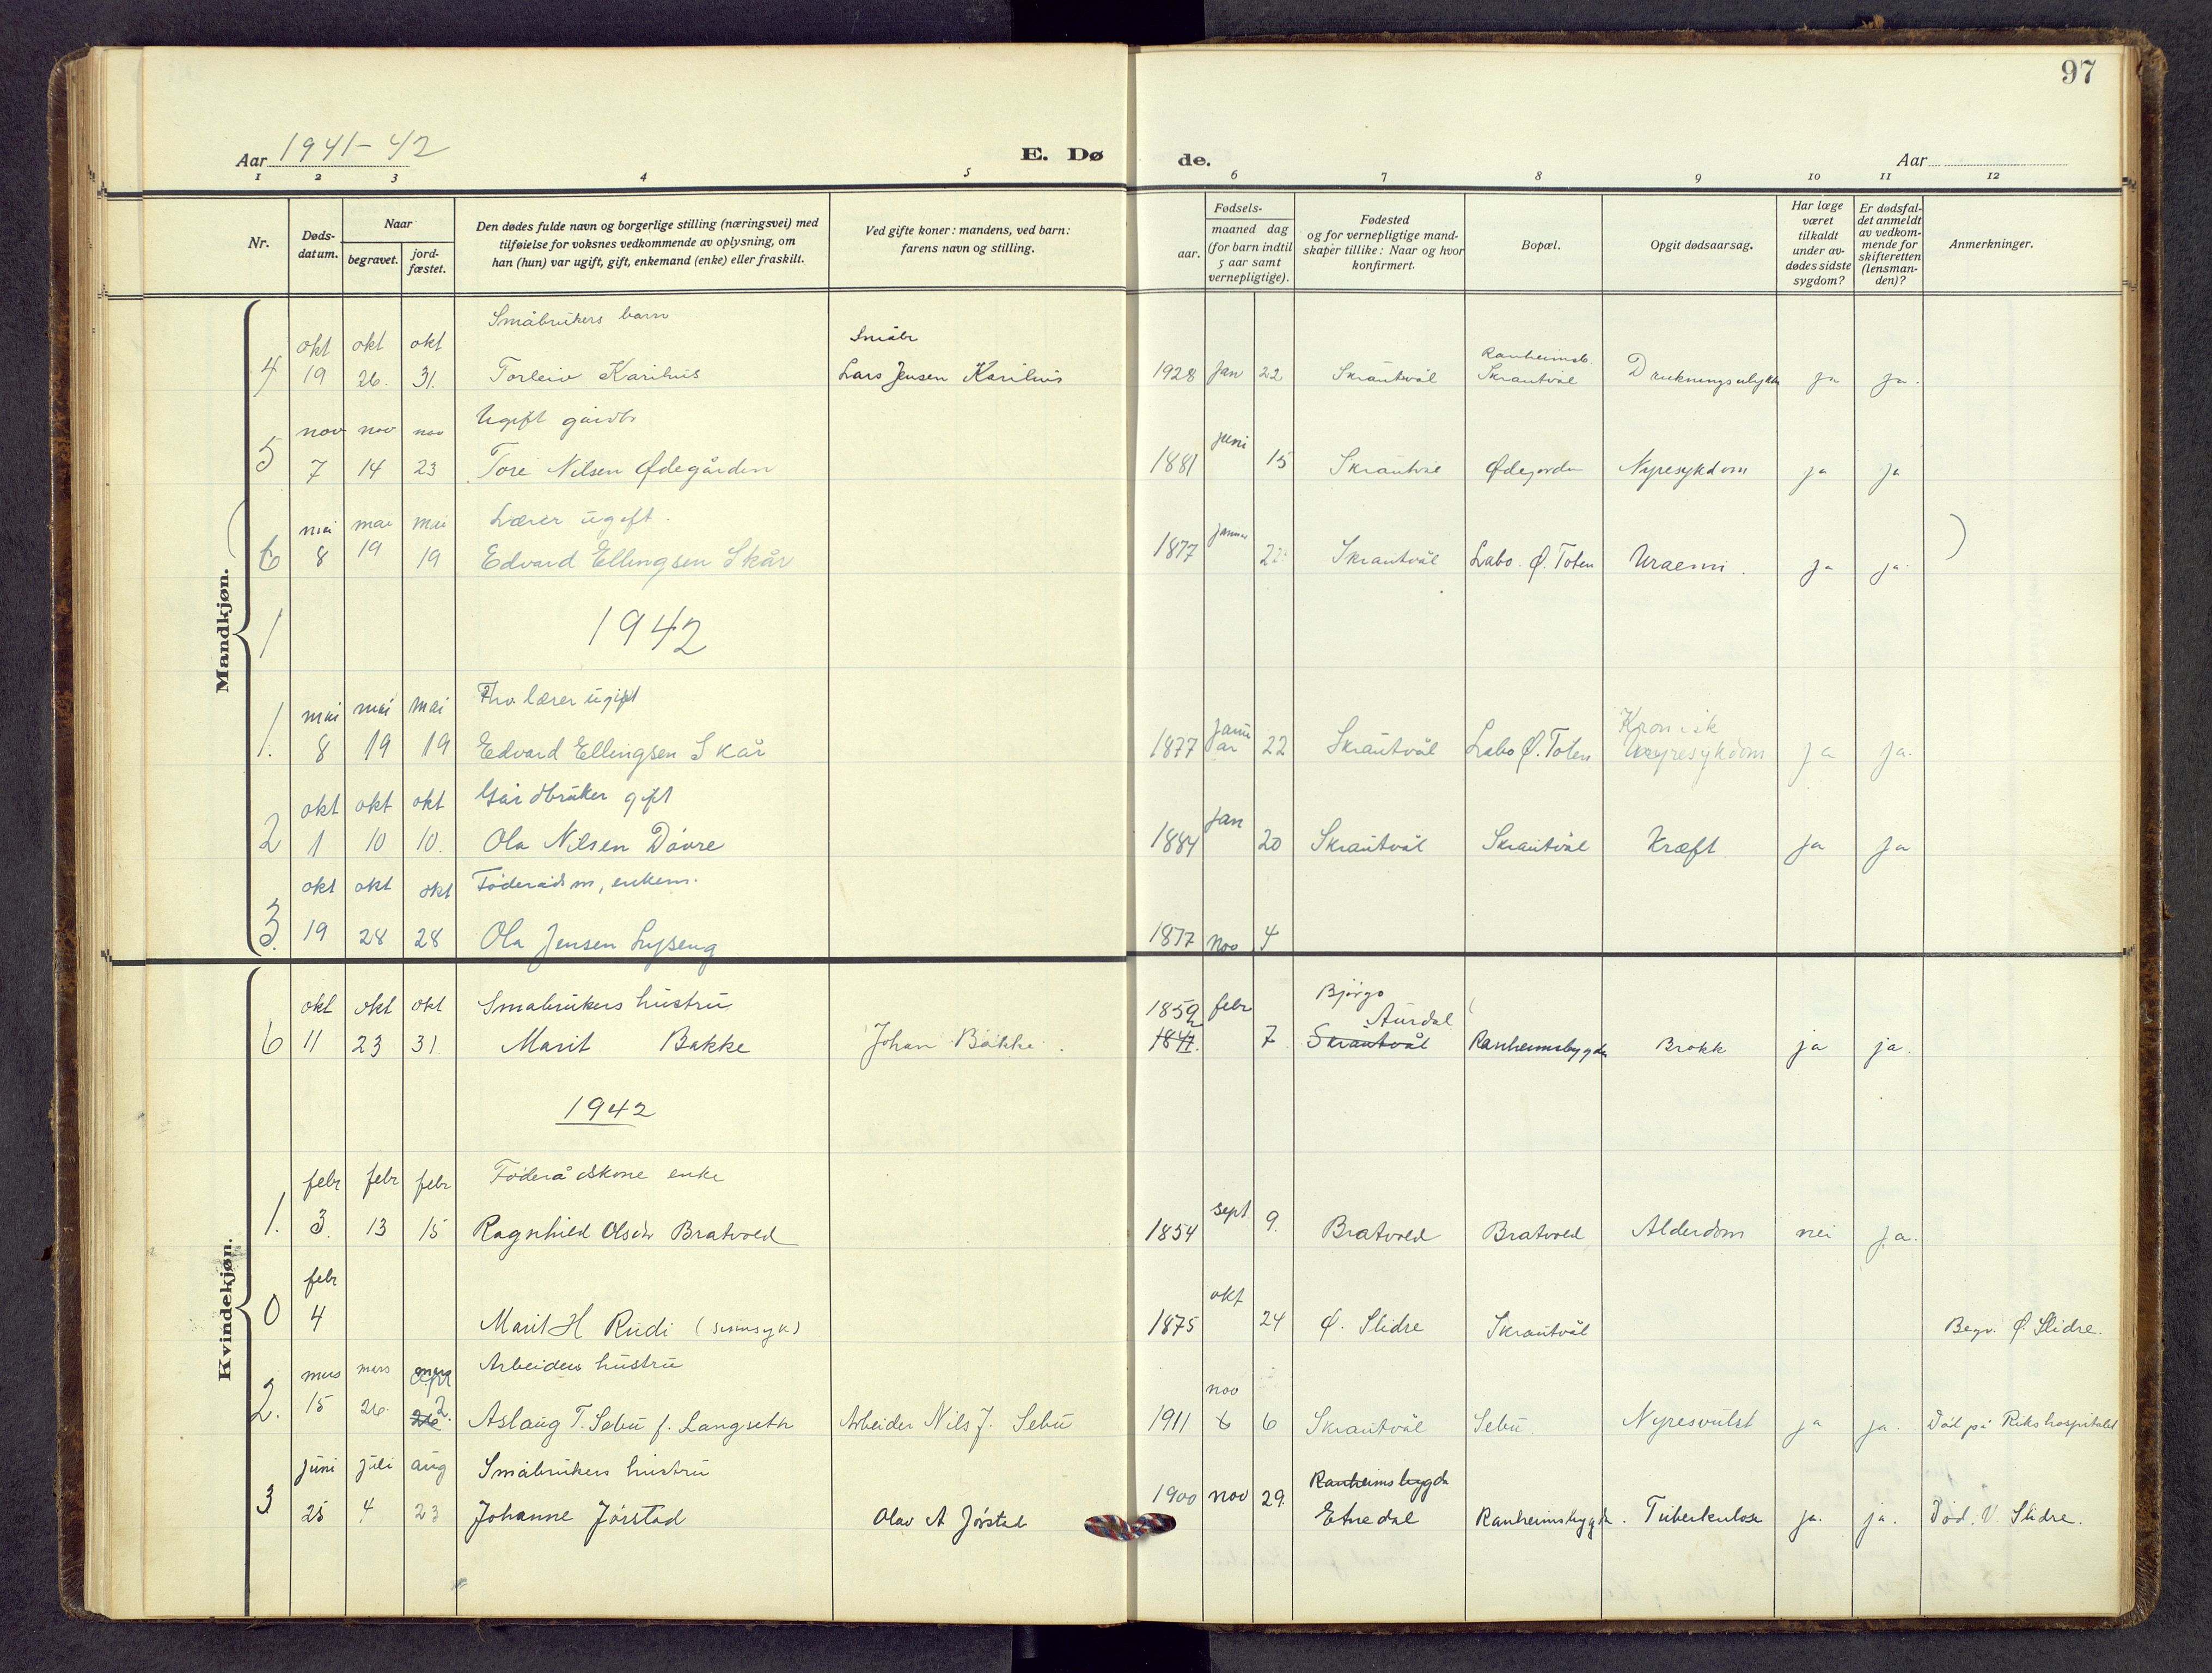 97
Aar 1941-42
E. Dø de.
Aar
1 2 3 4 5 6 7 8 9 10 11 12
Nr.
Døds-
datum.
Naar
begravet.
jord-
fæstet.
Den dødes fulde navn og borgerlige stilling (næringsvei) med
tilføielse for voksnes vedkommende av oplysning, om
han (hun) var ugift, gift, enkemand (enke) eller fraskilt.
Ved gifte koner: mandens, ved barn:
farens navn og stilling.
Fødsels-
aar.
maaned dag
(for barn indtil
5 aar samt
vernepligtige).
Fødested
og for vernepligtige mand-
skaper tillike: Naar og hvor
konfirmert.
Bopæl.
Opgit dødsaarsag.
Har læge
været
tilkaldt
under av-
dødes sidste
sygdom?
Er dødsfal-
det anmeldt
av vedkom-
mende for
skifteretten
(lensman-
den)?
Anmerkninger.
Mandkjøn.
Småbrukers barn
okt okt okt Småbr Ranheimsb.
4 19 26. 31. Torleiv Karihus Lars Jensen Karihus 1928 Jan 22 Skrautvål Skrautvål Drukningsulykke ja ja.
nov nov nov Ugift gårdbr juni
5 7 14 23 Tore Nilsen Ødegården 1881 15 Skrautvål Ødegården Nyresykdom ja ja
mai mai mai Lærer ugift. januar
6 8 19 19 Edvard Ellingsen Skår 1877 22 Skrautvål Labo Ø. Toten Uraemi. ja ja )
1 1942
mai mai mai Fhv. lærer ugift Janu Kronisk
1. 8 19 19 Edvard Ellingsen Skår 1877 ar 22 Skrautvål Labo Ø. Toten nyresykdom ja ja.
okt okt okt Gårdbruker gift Jan
2 1 10 10. Ola Nilsen Døvre 1884 20 Skrautvål Skrautvål Kræft ja ja
okt okt okt Føderådsm, enkem.
3. 19 28 28 Ola Jensen Lyseng 1877 nov 4
Kvindekjøn.
okt okt okt Småbrukers hustru 1859 febr Bjørgo
Aurdal
6 11 23 31 Marit Bakke Johan Bakke. 1847. 7 Skrautvål Ranheimsbygda Brokk ja ja.
1942
febr febr febr Føderådskone enke sept
1. 3. 13 15 Ragnhild Olsdtr Bratvold 1854 9. Bratvold Bratvold Alderdom nei ja.
febr okt
0 4 Marit H Rudi (sinnsyk) 1875 24 Ø. Slidre Skrautvål Begr. Ø. Slidre.
mars mars apr Arbeiders hustru nov
2. 15 26. 26 2. Aslaug T. Sebu f. Langseth Arbeider Nils J. Sebu 1911 6 6 Skrautvål Sebu Nyresvulst ja ja. Død på Rikshospitalet
juni juli aug Småbrukers hustru Ranheimsbygda
3 25 4 23 Johanne Jørstad Olav A Jørstad 1900 nov 29. Etnedal Ranheimsbygda. Tuberkulose ja. ja. Død. V. Slidre.